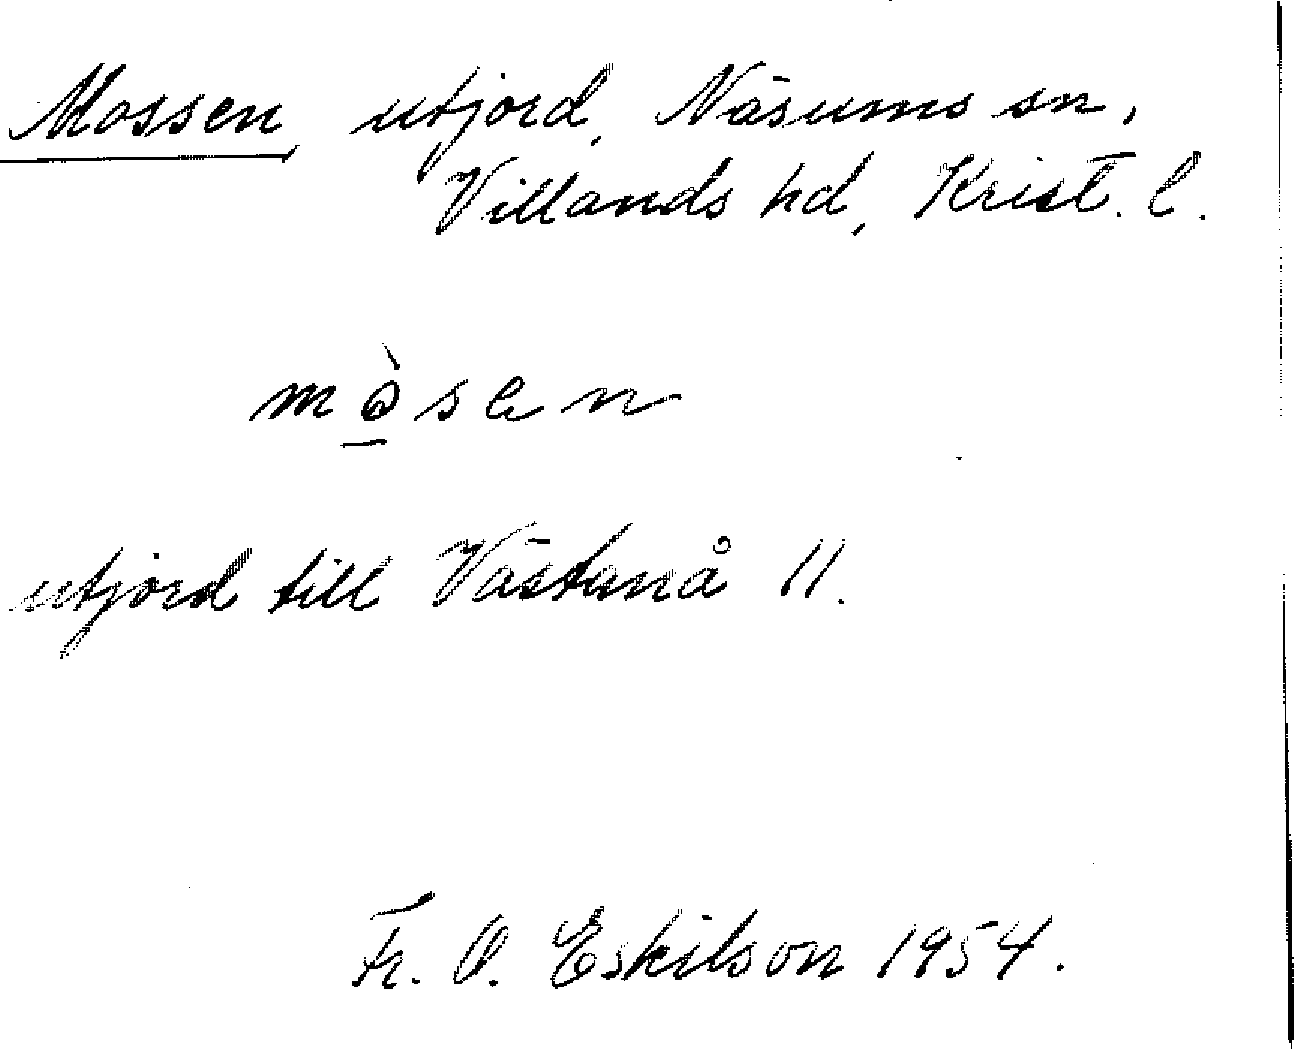 Mossen utjord, Näsums sn,
Villands hd, Krist. l.
mò̠sen
utjord till Västanå 11.
Fr. O. Eskilson 1954.